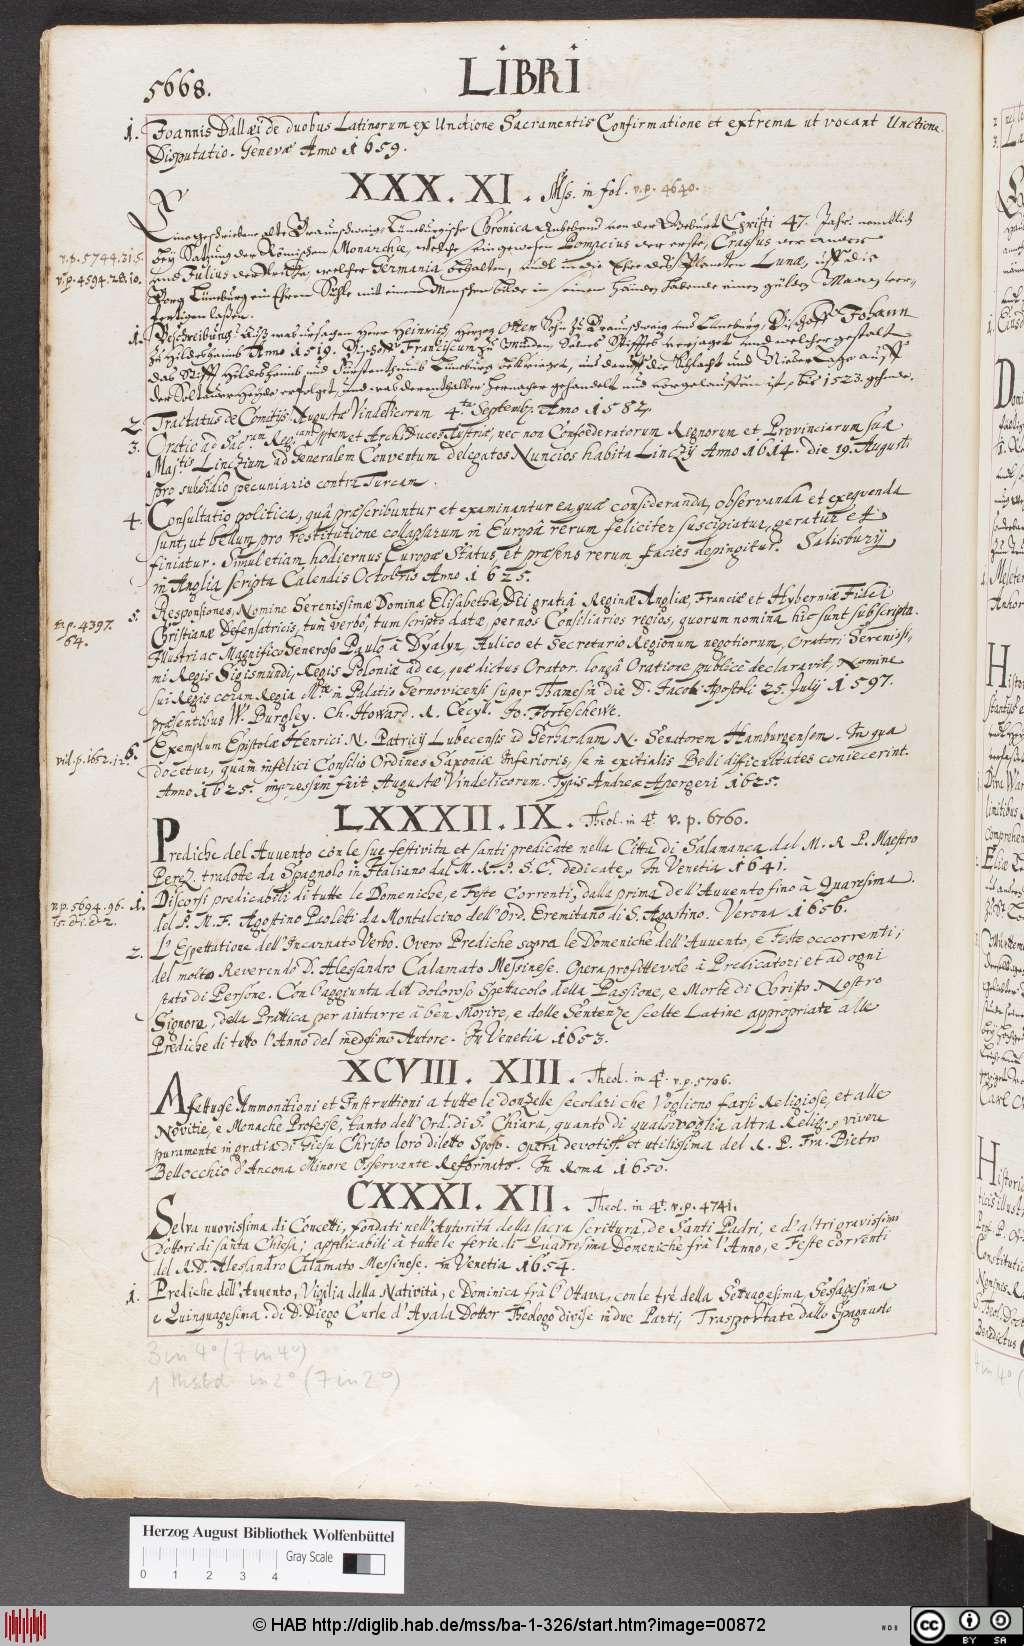 5668.
LIBRI
1. Joannis Dallæi de duobus Latinorum ex Unctione Sacramentis Confirmatione et extrema ut vocant Unctione
Disputatio. Genevæ Anno 1659.
XXX. XI. Mss. in fol. v. p. 4640.
Eine geschriebene alte Braunschweig: Lüneburgische Chronica Anhebend von der Geburt Christi 47. Jahr. nemblich
v. p. 5744. 31. 5.
bey Satzung der Römischen Monarchie, welche, eingenohmen Pompeius der erste, Crassus der ander
v. p. 4594. 28. 10.
und Julius der dritte, welcher Germania behalten, undt in die Ehre des Planeten Lunæ, uff die
Borg Lüneburg ein Ehern Seühle mit einem Menschen bilde in seinen händen habende einen gülden Maan ver-
fertigen laßen.
1. Beschreibung: Auß was ursachen Herr Heinrich, Herzog Otten Sohn zu Braunschweig und Lüneburg, Bischoff Johann
zu Hildesheimb Anno 1519. Bischoff Franciscum zu Münden seines Stiffts verjaget und welcher gestalt
das Stifft Hildesheimb, und Fürstenthumb Lüneburg bekrieget, und darauff die Schlacht und Niederlage auff
der Soltauerheyde erfolget, und was derenthalben hernacher gehandelt und vorgelauffen ist, biß 1523. gehende.
2. Tractatus de Comitijs Augustæ Vindelicorum 4.ta Septemb. Anno 1582.
3. Oratio ad Sac.ram Reg.iam et Archiduces Austriæ, nec non Confoederatorum Regnorum et Provinciarum sua
Maj.tis Linczium ad Generalem Conventum delegatos Nuncios habita Linczij Anno 1614. die 19. Augusti
pro subsidio pecuniario contra Turcam.
4. Consultatio politica, quâ præscribuntur et examinantur ea, quæ consideranda, observanda et exequenda
sunt, ut bellum, pro restitutione collapsarum in Europâ rerum feliciter suscipiatur, geratur et
finiatur. Simul etiam hodiernus Europæ Status et præsens rerum facies depingitur. Salisburij
in Anglia scripta Calendis Octobris Anno 1625.
5. Responsiones, Nomine Serenissimæ Dominæ Elisabethæ, Dei gratiâ Reginæ Angliæ, Franciæ et Hyberniæ Fidei
v. p. 4397.
64.
Christianæ Defensatricis, tum verbô, tum scripto datæ, per nos Consiliarios regios, quorum nomina hic sunt subscripta.
Illustri ac Magnifico Generoso Paulo â Dyalyn, Aulico et Secretario Regionum negotiorum, Oratori Serenissi-
mi Regis Sigismundi, Regis Poloniæ ad ea, quæ dictus Orator. longâ Oratione publicè declaravit, Nomine
sui Regis coram Regia M.te in Palatio Gernovicensi super Thamesin die D. Jacob. Apostoli 25. Julij 1597.
præsentibus W. Burgley. Ch. Howard. R. Cecyl. Jo. Forteschewe.
6. Exemplum Epistolæ Henrici N. Patricij Lubecensis ad Gerhardum N. Senatorem Hamburgensem. In qua
vid. p. 1652. 12.
docetur, quàm infelici Consilio Ordines Saxoniæ Inferioris, se in exitialis Belli difficultates coniecerint.
Anno 1625. impressum fuit Augustæ Vindelicorum. Typis Andreæ Apergeri 1625.
LXXXII. IX. Theol. in 4t. v. p. 6760.
Prediche del Auuento con le sue festivita et santi predicate nella Citta di Salamanca dal M. R. P. Maestro
Perez. tradotte da Spagnolo in Italiano dal M. R. P. S. C. dedicate, In Venetia 1641.
v. p. 5694. 96.
1. Discorsi predicabili di tutte le Domeniche, e Feste Correnti, dalla prima dell'Auuento fino à Quaresima.
del P. M. F. Agostino Paoletti da Montalcino dell'Ord. Eremitano di S. Agostino. Verona 1656.
2. L'Espettatione dell'Incarnato Verbo. Overo Prediche sopra le Domeniche dell'Auuento, e Feste occorrenti;
del molto Reverendo D. Alessandro Calamato Messinese. Opera profittevole à Predicatori et ad ogni
stato di Persone. Con l'aggiunta del doloroso Spettacolo della Passione, e Morte di Christo Nostro
Signore, della Prattica per aiutarre à ben Morire, e delle Sentenze scelte Latine appropriate alle
Prediche di tutto l'Anno del medesimo Autore. In Venetia 1653.
XCVIII. XIII. Theol. in 4t. v. p. 5706.
Affettuose Ammonitioni et Instruttioni a tutte le donzelle secolari che Vogliono farsi Religiose, et alle
Novitie, e Monache Professe, tanto dell'Ord. di S. Chiara, quanto di qualsivoglia altra Relig. vivere
puramente in gratia di Giesu Christo loro diletto Sposo. opera devotiss. et utilissima del R. P. Fra. Pietro
Bellocchio d'Ancona Minore Osservante Reformato. In Roma 1650.
CXXXI. XII. Theol. in 4t. v. p. 4741.
Selva nuovissima di Concetti, fondati nell'Autorità della sacra scrittura, De Santi Padri, e d'altri gravissimi
Dottori di santa Chiesa; applicabili à tutte le ferie di Quadresima Domeniche frà l'Anno, e Feste correnti
del R. D. Alessandro Calamato Messinese. In Venetia 1654.
1. Prediche dell'Auuento, Vigilia della Natività, e Dominica frà l'Ottava, con le tre della Settuagesima, Sessagesima
e Quinquagesima. di D. Diego Curle d'Ayala Dottor Theologo divise in due Parti, Trasportate dallo Spagnuolo
3 in 4° (7 in 4°)
1 Mssbd in 2° (7 in 2°)
Herzog August Bibliothek Wolfenbüttel
Gray Scale
0 1 2 3 4
© HAB http://diglib.hab.de/mss/ba-1-326/start.htm?image=00872
WDB
cc BY SA